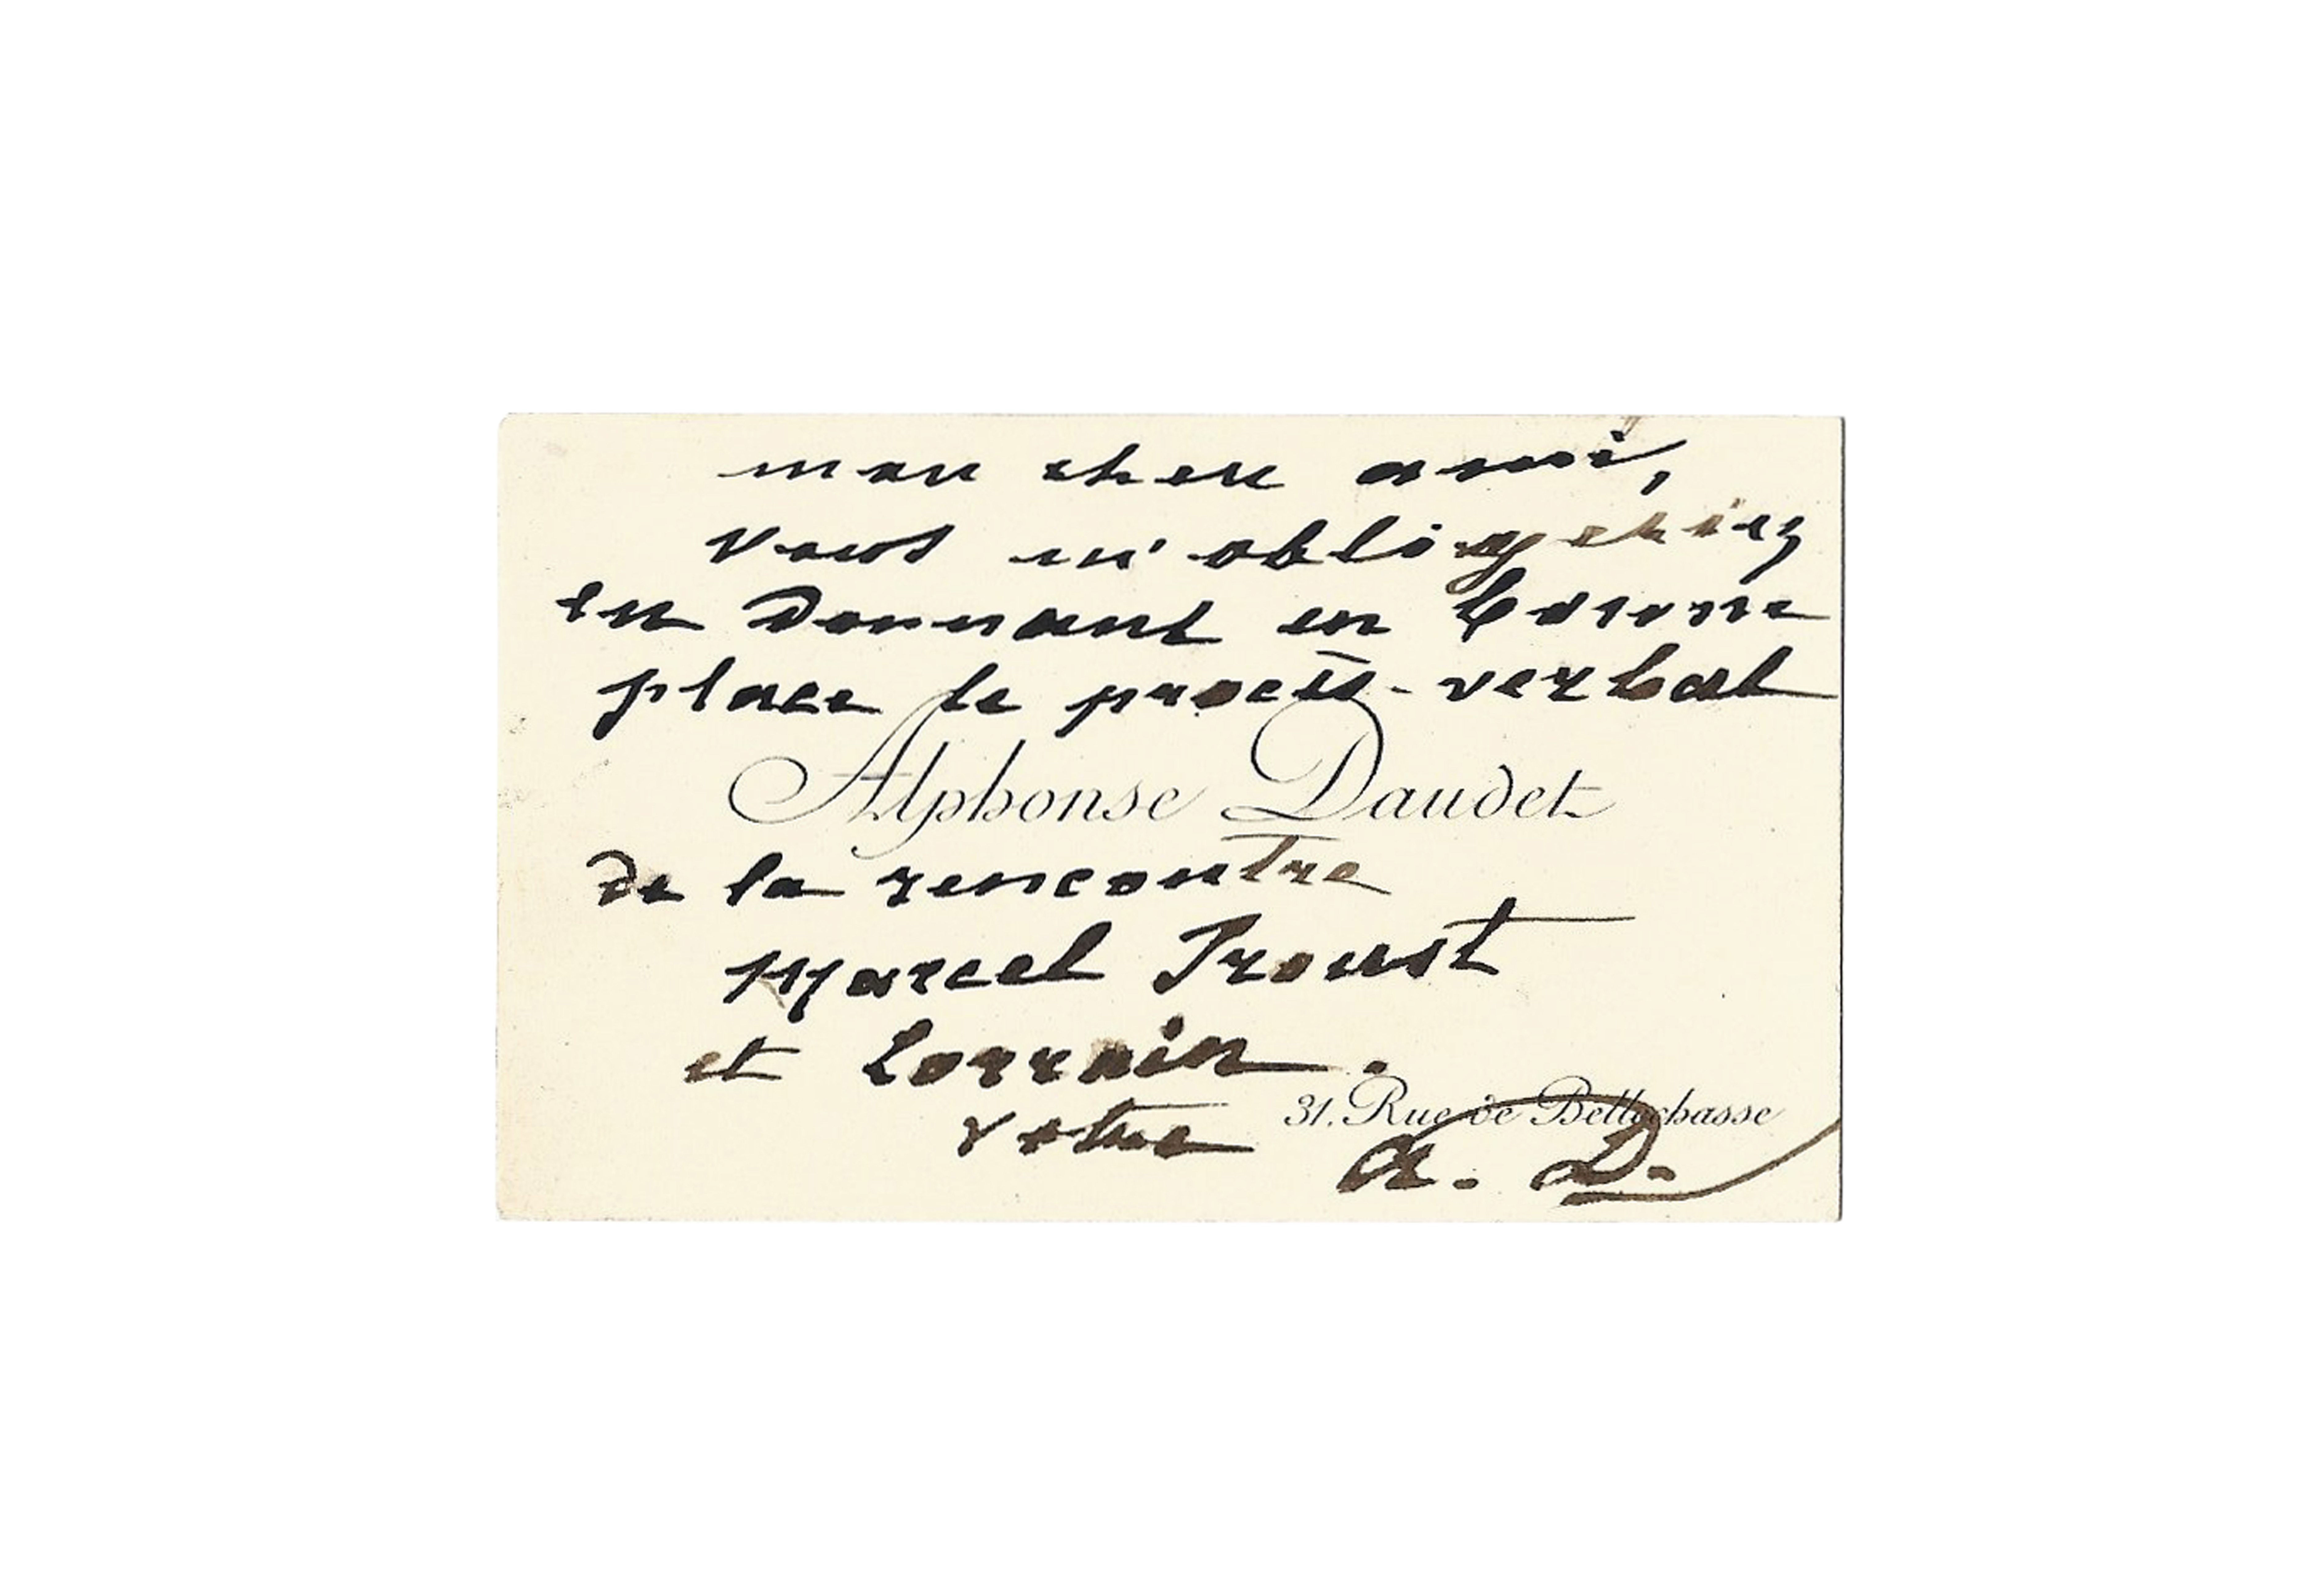 mon cher ami,
vous m'obligeriez
en donnant en bonne
place le procès-verbal
Alphonse Daudet
de la rencontre
Marcel Proust
et Lorrain.
31. Rue de Bellechasse
votre
A. D.